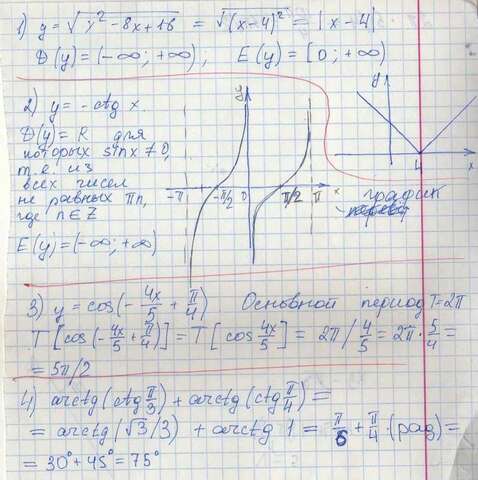 1) y = √x² - 8x + 16 = √(x - 4)² = |x - 4|
D(y) = (-∞; +∞), E(y) = [0; +∞)
y
4
x
2) y = -ctg x.
D(y) = R для
которых sin x ≠ 0,
т.е. из
всех чисел
не равных πn,
где n∈Z
E(y) = (-∞; +∞)
y
-π -π/2 0 π/2 π x
график
3) y = cos(-4x/5 + π/4). Основной период T = 2π
T[cos(-4x/5 + π/4)] = T[cos 4x/5] = 2π / 4/5 = 2π · 5/4 =
= 5π/2
4) arctg(ctg π/3) + arctg(ctg π/4) =
= arctg(√3/3) + arctg 1 = π/6 + π/4 (рад) =
= 30° + 45° = 75°